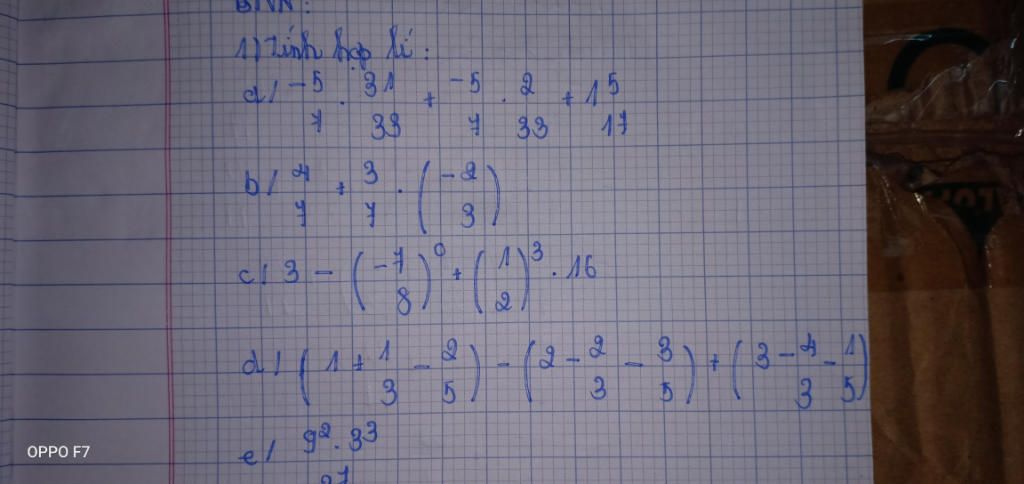 BTVN:
1) Tính hợp lí:
a/ -5/7 . 31/33 + -5/7 . 2/33 + 1 5/17
b/ 4/7 + 3/7 . (-2/3)
c/ 3 - (-7/8)^0 + (1/2)^3 . 16
d/ (1 + 1/3 - 2/5) - (2 - 2/3 - 3/5) + (3 - 4/3 - 1/5)
e/ 9^2 . 3^3
27
OPPO F7